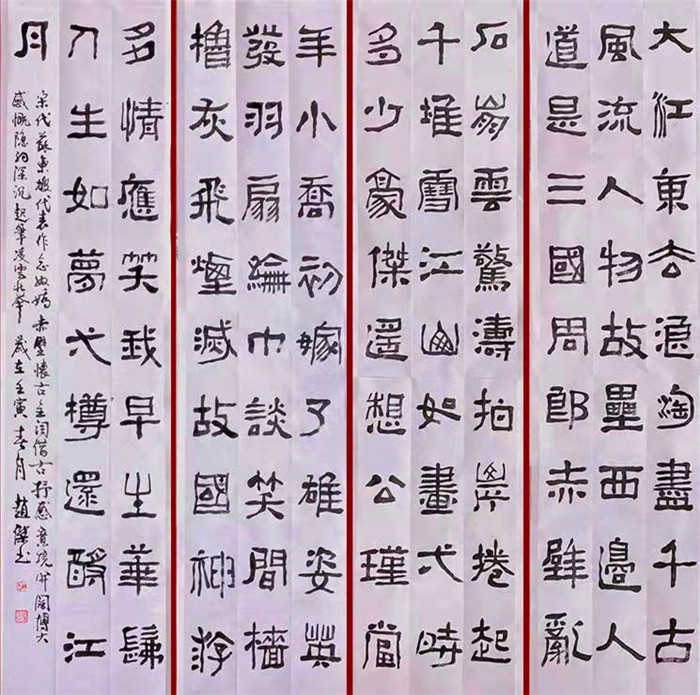 大江東去浪淘盡千古
風流人物故壘西邊人
道是三國周郎赤壁亂
石崩雲驚濤拍岸捲起
千堆雪江山如畫弌時
多少豪傑遙想公瑾當
年小喬初嫁了雄姿英
發羽扇綸巾談笑間檣
櫓灰飛煙滅故國神游
多情應笑我早生華髮
人生如夢弌樽還酹江
月
宋代蘇東坡代表作念奴嬌赤壁懷古主詞借古抒感意境開闊博大
感慨隱約深沉起筆凌雲 歲在壬寅春月趙書